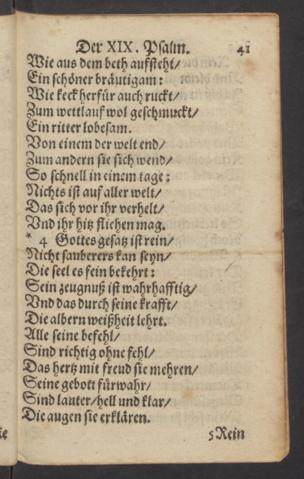 Der XIX. Psalm. 41
Wie aus dem beth aufsteht/
Ein schöner bräutigam:
Wie keck herfür auch ruckt/
Zum wettlauf wol geschmuckt/
Ein ritter lobesam.
Von einem der welt end/
Zum andern sie sich wend/
So schnell in einem tage:
Nichts ist auf aller welt/
Das sich vor ihr verhelt/
Vnd ihr hitz fliehen mag.
* 4 Gottes gesatz ist rein/
Nicht sauberers kan seyn/
Die seel es fein bekehrt:
Sein zeugnuß ist wahrhafftig/
Vnd das durch seine krafft/
Die albern weißheit lehrt.
Alle seine befehl/
Sind richtig ohne fehl/
Das hertz mit freud sie mehren/
Seine gebott fürwahr/
Sind lauter/hell und klar/
Die augen sie erklären.
5 Rein